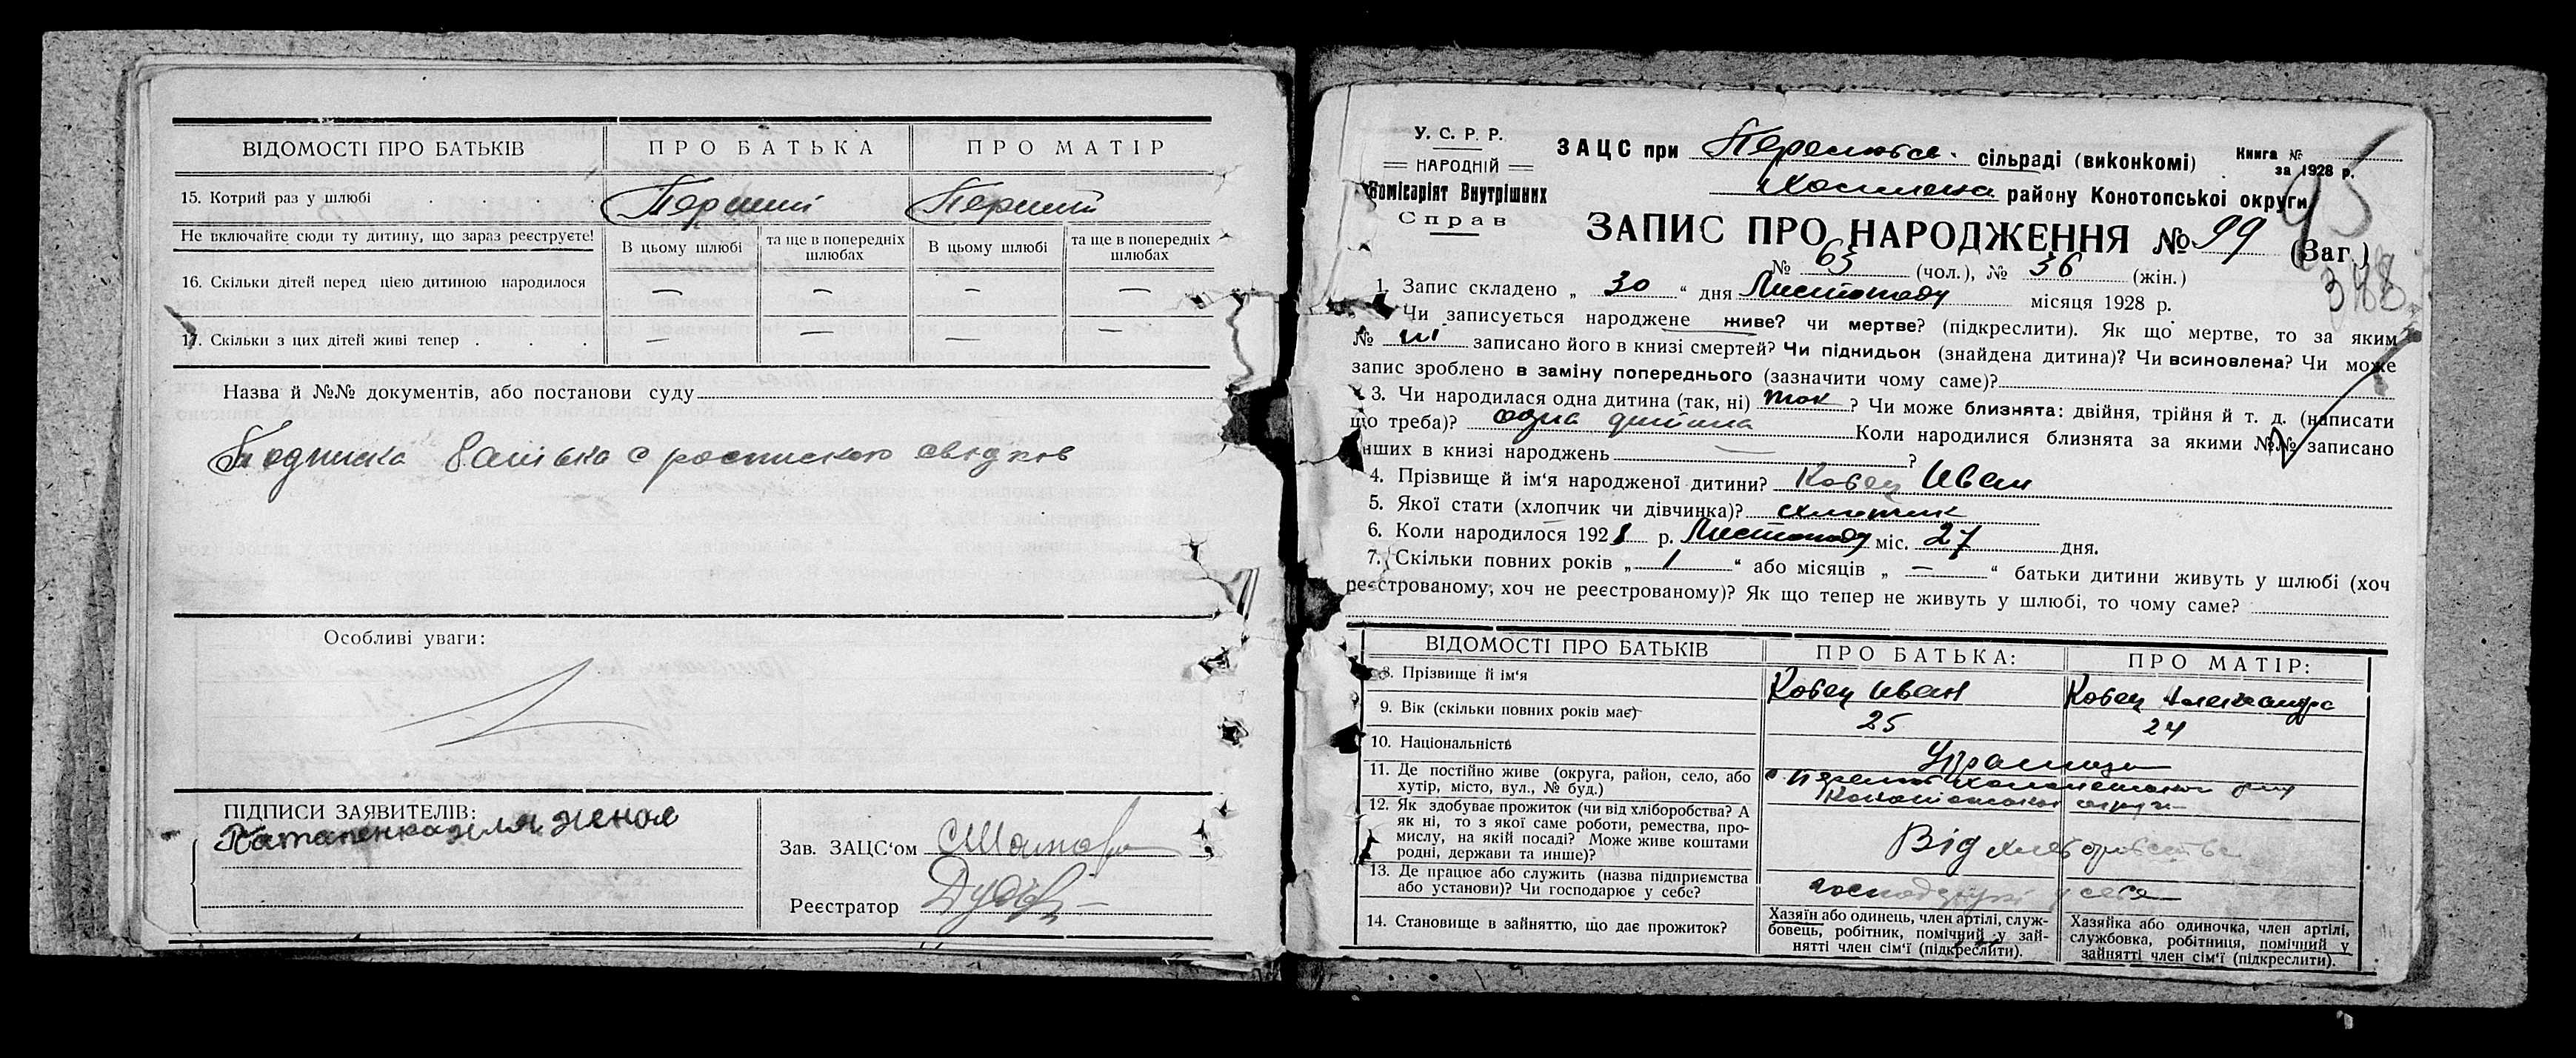 ВІДОМОСТІ ПРО БАТЬКІВ ПРО БАТЬКА ПРО МАТІР
15. Котрий раз у шлюбі . . . . Перший Перший
Не включайте сюди ту дитину, що зараз реєструєте!
В цьому шлюбі та ще в попередніх шлюбах В цьому шлюбі та ще в попередніх шлюбах
16. Скільки дітей перед цією дитиною народилося — — — —
17. Скільки з цих дітей живі тепер . . . — — — —
Назва й №№ документів, або постанови суду
Подписка батька с роспискою свідків
Особливі уваги:
ПІДПИСИ ЗАЯВИТЕЛІВ:
Зав. ЗАЦС‘ом
Реєстратор
У. С. Р. Р.
НАРОДНІЙ
Комісаріят Внутрішних
Справ
ЗАЦС при сільраді (виконкомі)
району Конотопської округи
Книга №
за 1928 р.
95
ЗАПИС ПРО НАРОДЖЕННЯ № 99 (Заг.)
№ 63 (чол.), № 36 (жін.)
1. Запис складено „ 30 “ дня Листопаду місяця 1928 р.
Чи записується народжене живе? чи мертве? (підкреслити). Як що мертве, то за яким
№ записано його в книзі смертей? Чи підкидьок (знайдена дитина)? Чи всиновлена? Чи може
запис зроблено в заміну попереднього (зазначити чому саме)?
3. Чи народилася одна дитина (так, ні) так ? Чи може близнята: двійня, трійня й т. д. (написати
що треба)? одна дитина Коли народилися близнята за якими №№ записано
інших в книзі народжень — ?
4. Прізвище й ім‘я народженої дитини? Ковец Иван
5. Якої стати (хлопчик чи дівчинка)? хлопчик
6. Коли народилося 1928 р. Листопаду міс. 27 дня.
7. Скільки повних років „ 1 “ або місяців „ — “ батьки дитини живуть у шлюбі (хоч
реєстрованому, хоч не реєстрованому)? Як що тепер не живуть у шлюбі, то чому саме?
ВІДОМОСТІ ПРО БАТЬКІВ ПРО БАТЬКА: ПРО МАТІР:
8. Прізвище й ім‘я Ковец Иван Ковец Александра
9. Вік (скільки повних років має) 25 24
10. Національність
11. Де постійно живе (округа, район, село, або
хутір, місто, вул., № буд.)
12. Як здобуває прожиток (чи від хліборобства? А
як ні, то з якої саме роботи, ремества, про-
мислу, на якій посаді? Може живе коштами
родні, держави та инше)?
Від хлеборобства
13. Де працює або служить (назва підприємства
або установи)? Чи господарює у себе?
господарює у себя
14. Становище в зайняттю, що дає прожиток?
Хазяїн або одинець, член артілі, служ-
бовець, робітник, помічний у зай-
нятті член сім‘ї (підкреслити).
Хазяйка або одиночка, член артілі,
службовка, робітниця, помічний у
зайнятті член сім‘ї (підкреслити).